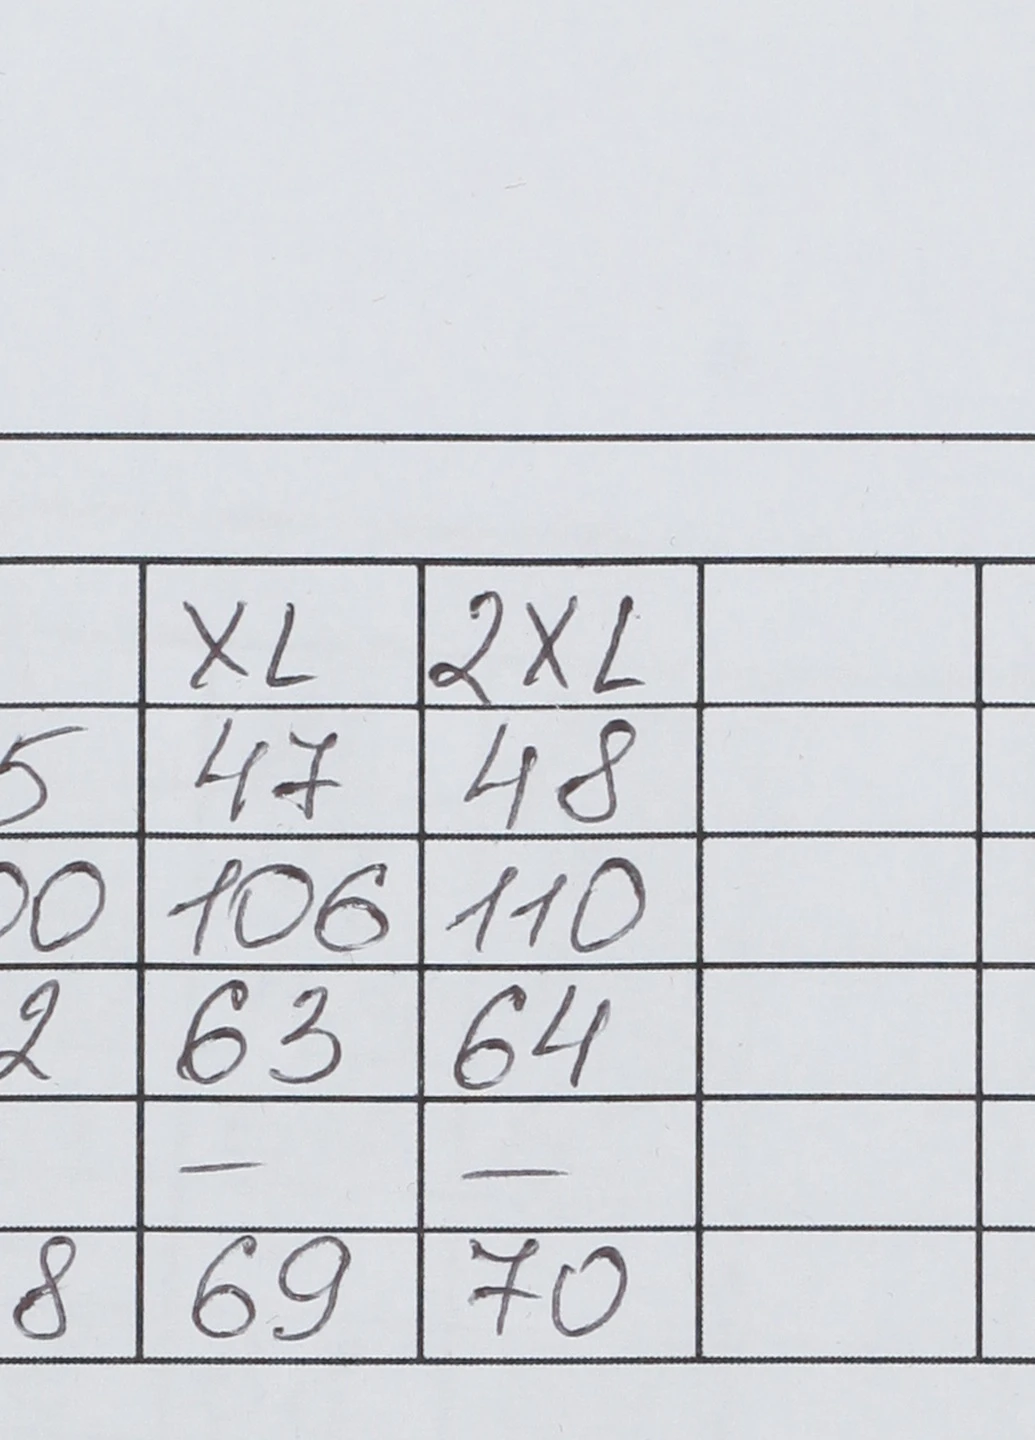 XL 2XL
5 47 48
00 106 110
2 63 64
— —
8 69 70